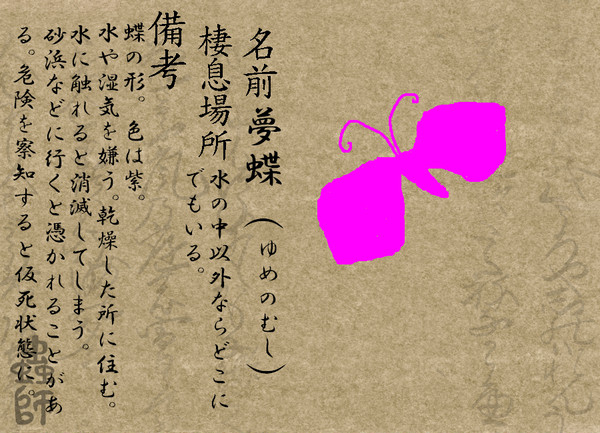 名前 夢蝶 （ゆめのむし）
棲息場所 水の中以外ならどこに
でもいる。
備考
蝶の形。色は紫。
水や湿気を嫌う。乾燥した所に住む。
水に触れると消滅してしまう。
砂浜などに行くと憑かれることがあ
る。危険を察知すると仮死状態に。
蟲師